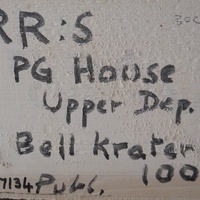 RR:S
PG House
Upper Dep.
Bell Krater
100
7134 Publ.